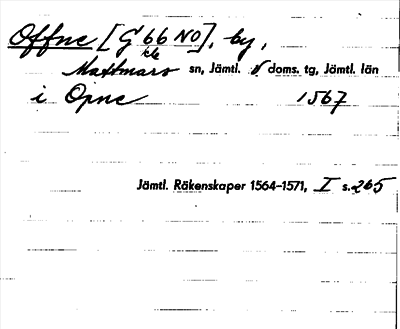 Offne [G 66 NO], by,
kle
Mattmars sn, Jämtl. V doms. tg, Jämtl. län
i Opne 1567
Jämtl. Räkenskaper 1564–1571, I s. 265